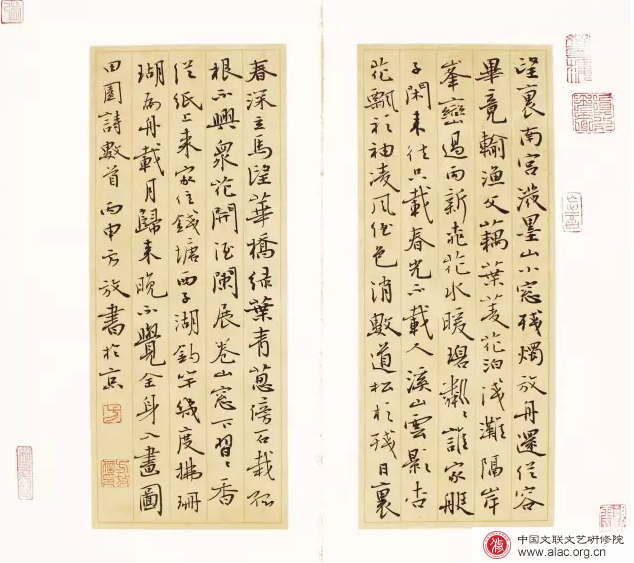 望裏南宮潑墨山小窓殘燭放舟還從容
畢竟輸漁父藕葉菱花泊淺灘隔岸
峯巒過雨新桃花水暖碧粼々誰家艇
子閑來往只載春光不載人溪山雲影
花飄衫袖凌風色消數道松杉殘日裏
春深立馬望華橋綠葉青蔥傍石栽孤
根不與衆花開酒闌展卷山窓下習々香
從紙上來家住錢塘西子湖釣竿幾度拂珊
瑚扁舟載月歸來晚不覺全身入畫圖
田園詩數首丙申方放書於京
中国文联文艺研修院
www.alac.org.cn